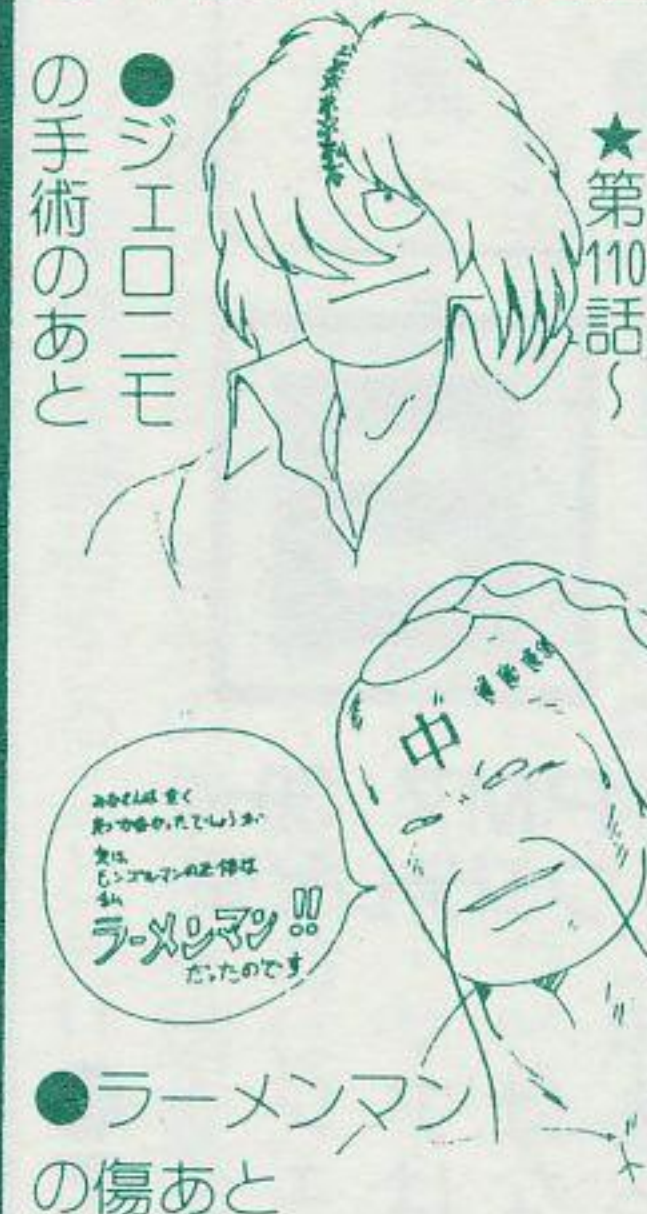 ★第110話~
●ジェロニモ
の手術のあと
中
みなさんは全く
気づかなかったでしょうが
実は
モンゴルマンの正体は
私
ラーメンマン!!
だったのです
●ラーメンマン
の傷あと